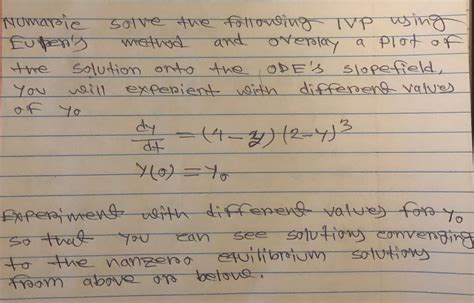 Numaric solve the following IVP using
Euper's method and overlay a plot of
the solution onto the ODE's slopefield,
you will experient with different values
of y₀
dy/dt = (4-y)(2-y)³
y(0) = y₀
Experiment with different values for y₀
so that you can see solutions converging
to the nanzero equilibrium solutions
from above or below.